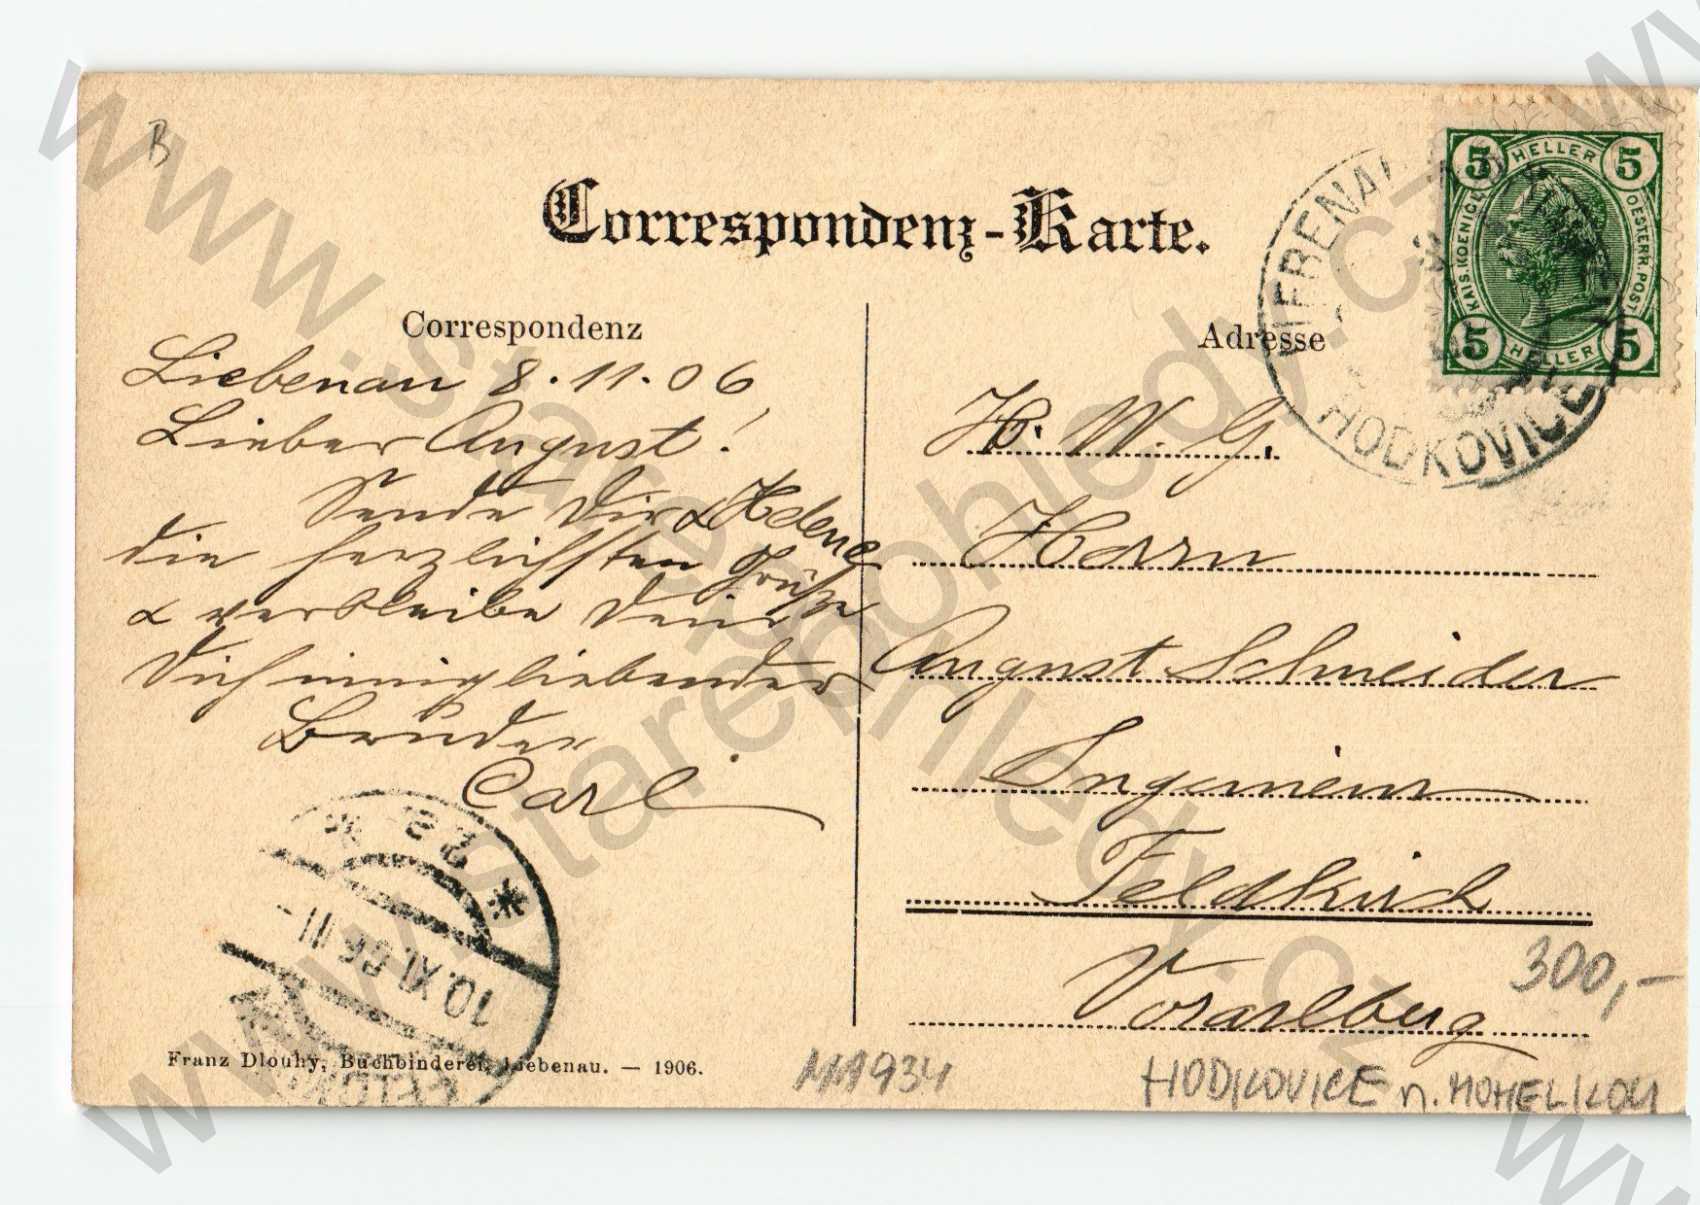 B
Correspondenz-Karte.
Correspondenz
Liebenau 8.11.06,
Lieber August!
Sende Dir & Helene
die herzlichsten Grüße
& verbleibe Dein
Dich innigliebender
Bruder
Carl
Franz Dlouhy, Buchbinderei, Liebenau. — 1906.
10.XI.06 III
Adresse
H. W. G.
Herrn
August Schneider
Ingenieur
Feldkirch
Vorarlberg
5 HELLER 5
KAIS. KOENIGL. OESTERR. POST
5 HELLER 5
LIEBENAU
HODKOVICE
300,-
M1934
HODKOVICE n. MOHELKOU
www.starepohledy.cz
www.starepohledy.cz